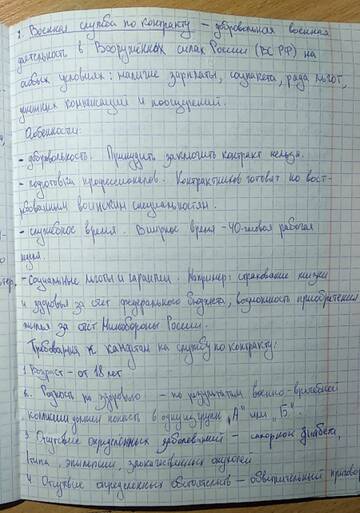 Военная служба по контракту – добровольная военная
деятельность в Вооружённых силах России (ВС РФ) на
особых условиях: наличие зарплаты, соцпакета, ряда льгот,
компенсаций и поощрений.
Особенности:
- добровольность. Принудить заключить контракт нельзя.
- подготовка профессионалов. Контрактников готовят по вост-
ребованным воинским специальностям.
- служебное время. В мирное время - 40-часовая рабочая
- Социальные льготы и гарантии. Например: страхование жизни
и здоровья за счёт федерального бюджета, возможность приобретения
жилья за счёт Минобороны России.
Требования к кандидатам на службу по контракту:
1. Возраст - от 18 лет
Годность по здоровью - по результатам военно-врачебной
комиссии попасть в одну из групп "А" или "Б".
3 Отсутствие определённых заболеваний - сахарный диабет,
типа, эпилепсии, злокачественных опухолей
4 Отсутствие определённых обстоятельств - обвинительный приговор